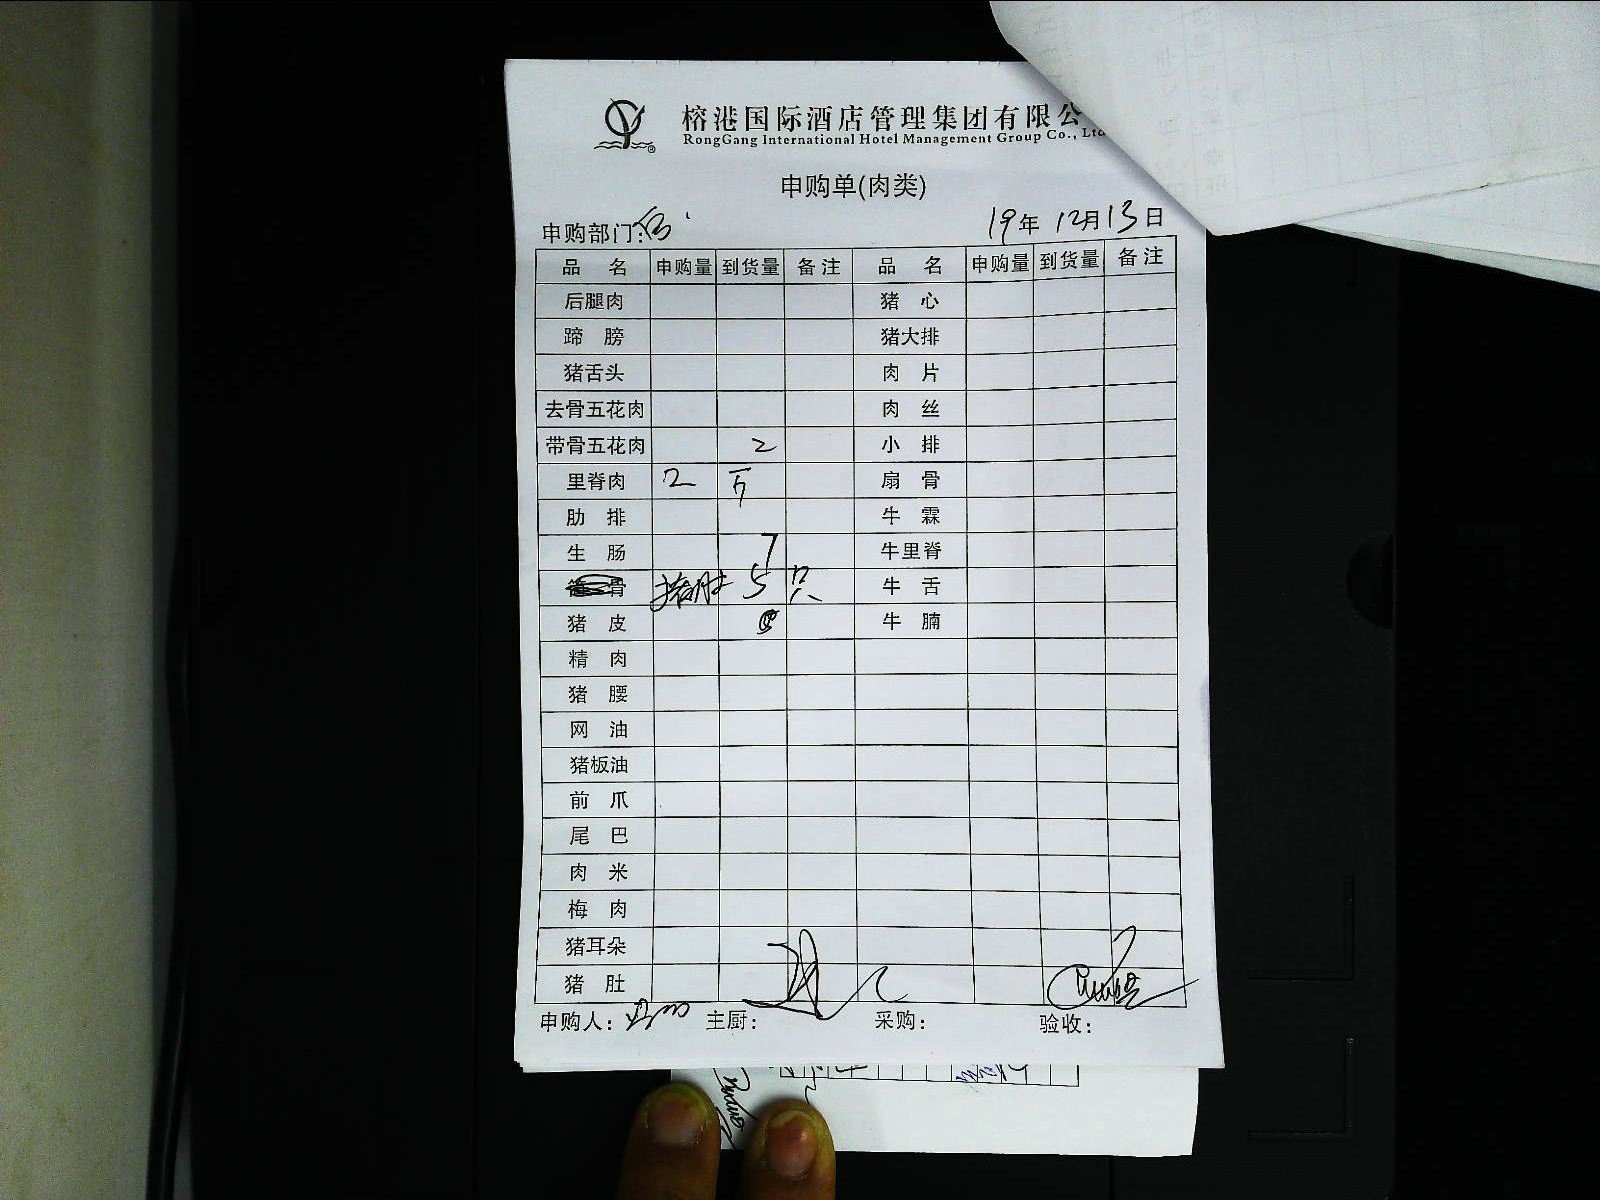 榕港国际酒店管理集团有限公
RongGang International Hotel Management Group Co., Ltd
申购单(肉类)
申购部门: 19年 12月13日
品 名 申购量 到货量 备注 品 名 申购量 到货量 备注
后腿肉 猪 心
蹄 膀 猪大排
猪舌头 肉 片
去骨五花肉 肉 丝
带骨五花肉 2 小 排
里脊肉 2 斤 扇 骨
肋 排 牛 霖
生 肠 7 牛里脊
骨 猪肚 5 只 牛 舌
猪 皮 牛 腩
精 肉
猪 腰
网 油
猪板油
前 爪
尾 巴
肉 米
梅 肉
猪耳朵
猪 肚
申购人: 主厨: 采购: 验收: